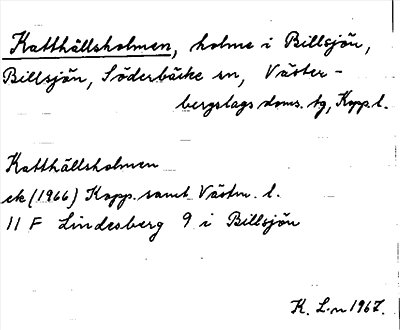 Katthällsholmen, holme i Billsjön,
Billsjön, Söderbärke sn, Väster-
bergslags doms. tg, Kopp. l.
Katthällsholmen
ek (1966) Kopp. samt Västm. l.
11 F Lindesberg 9 i Billsjön
K. L-n 1967.